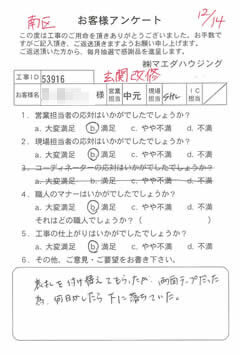 南区 お客様アンケート 12/14
この度は工事のご用命を頂きありがとうございました。お手数で
すがご記入頂き、ご返送頂きますようお願い申し上げます。
ご返送いただいた方から、毎月抽選で感謝品を進呈します。
㈱マエダハウジング
工事ID 53916 玄関改修
お客様名 様 営業担当 中元 現場担当 IC 担当
1. 営業担当者の応対はいかがでしたでしょうか?
a. 大変満足 b. 満足 c. やや不満 d. 不満
2. 現場担当者の応対はいかがでしたでしょうか?
a. 大変満足 b. 満足 c. やや不満 d. 不満
3. コーディネーターの応対はいかがでしたでしょうか?
a. 大変満足 b. 満足 c. やや不満 d. 不満
4. 職人のマナーはいかがでしたでしょうか?
a. 大変満足 b. 満足 c. やや不満 d. 不満
それはどの職人でしょうか?( )
5. 工事の仕上がりはいかがでしたでしょうか?
a. 大変満足 b. 満足 c. やや不満 d. 不満
6. その他、ご意見・ご要望をお書き下さい。
表札を付け替えてもらったが、両面テープだった
為、何日かしたら下に落ちていた。